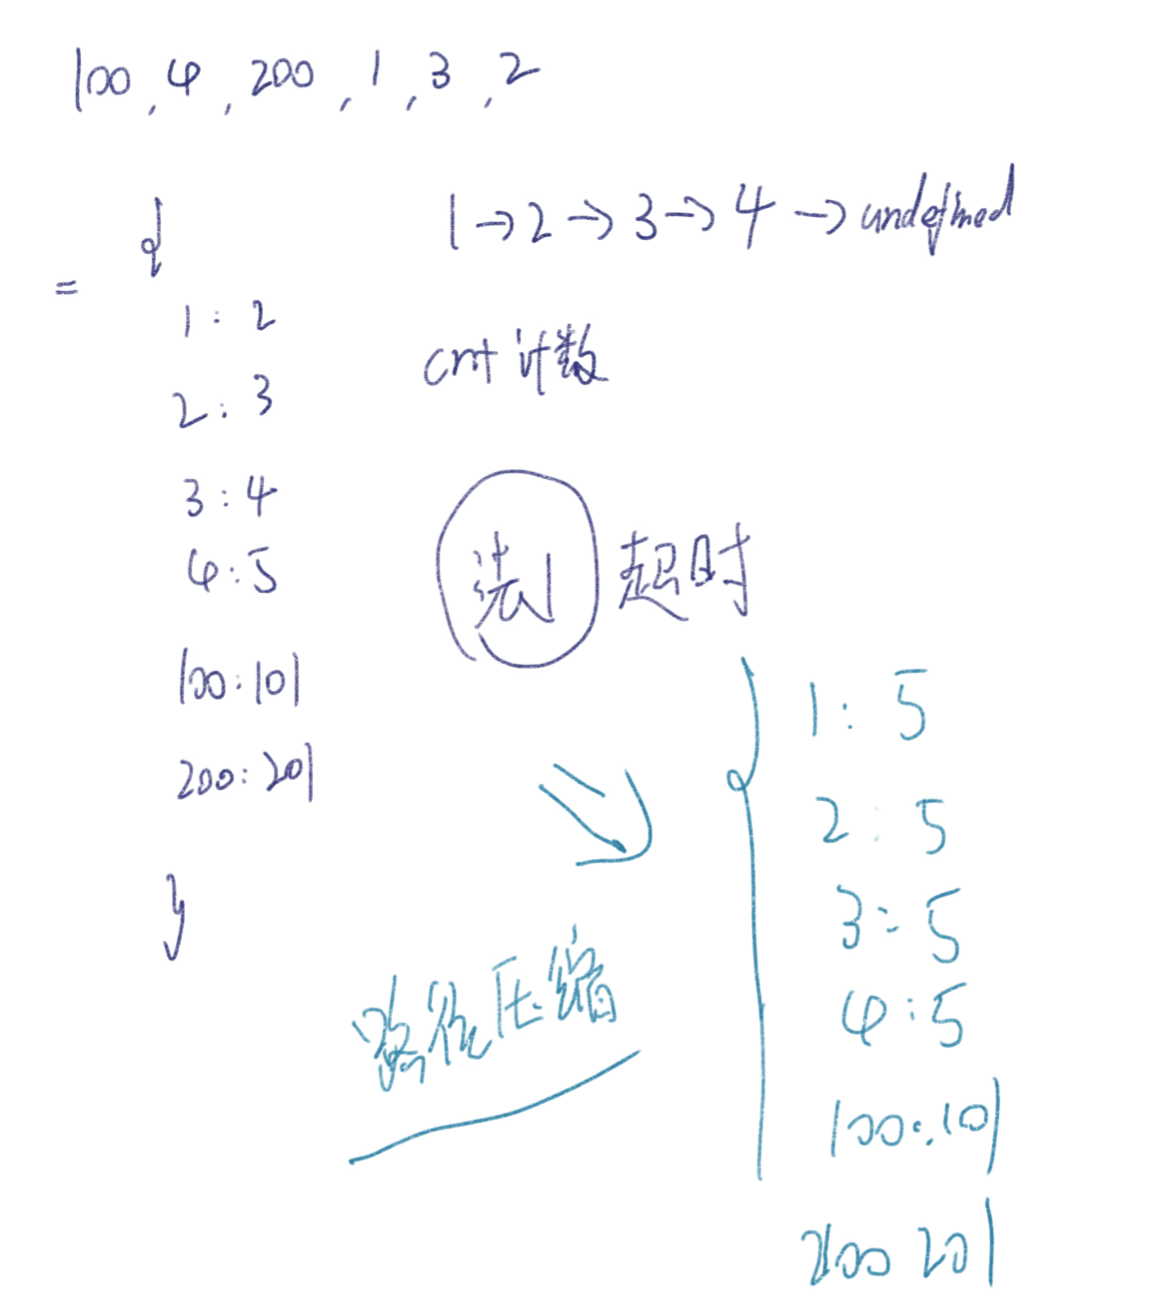 100, 4, 200, 1, 3, 2
= {
1 : 2
2 : 3
3 : 4
4 : 5
100 : 101
200 : 201
}
1 → 2 → 3 → 4 → undefined
cnt 计数
超时
路径压缩
{
1 : 5
2 : 5
3 : 5
4 : 5
100 : 101
200 201